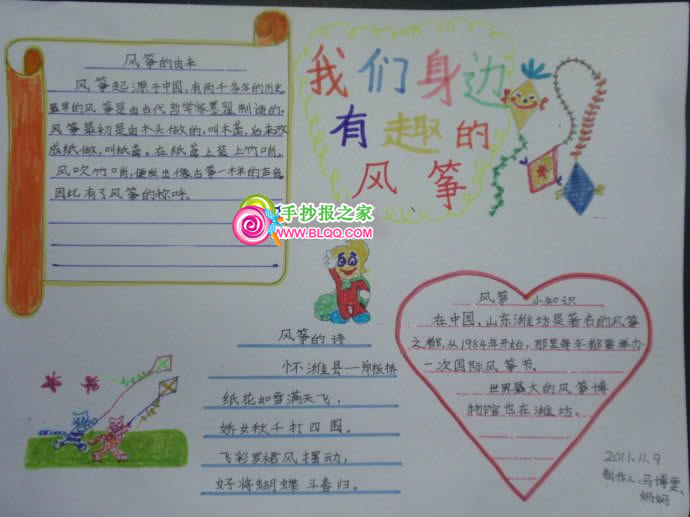 风筝的由来
风筝起源于中国，有两千多年的历史
最早的风筝是由古代哲学家墨翟制造的。
风筝最初是由木头做的，叫木鸢，后来改
成纸做，叫纸鸢。在纸鸢上装上竹哨。
风吹竹哨，便发出像古筝一样的声音
因此有了风筝的称呼。
我们身边
有趣的
风筝
手抄报之家
WWW.BLQQ.COM
风筝的诗
怀潍县—郑板桥
纸花如雪满天飞，
娇女秋千打四围。
飞彩罗裙风摆动，
好将蝴蝶斗春归。
风筝 小知识
在中国，山东潍坊是著名的风筝
之都，从1984年开始，那里每年都要举办
一次国际风筝节。
世界最大的风筝博
物馆也在潍坊。
2011.11.9
制作人：马博雯、
妈妈